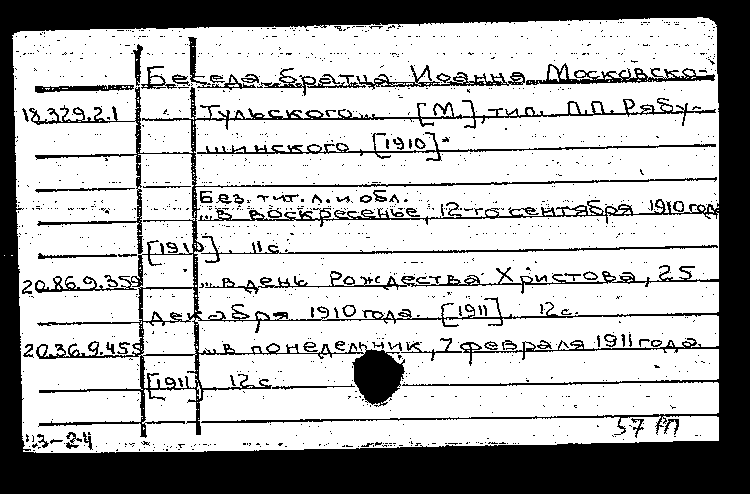 Беседа братца Иоанна Московско-
18.329.2.1 Тульского... [М.], тип. П.П. Рябу-
шинского, [1910]-
Без. тит. л. и обл.
...в воскресенье, 12-го сентября 1910 года
[1910]. 11 с.
20.86.9.359 ...в день Рождества Христова, 25
декабря 1910 года. [1911]. 12 с.
20.36.9.455 ...в понедельник, 7 февраля 1911 года.
[1911]. 12 с.
57 РП